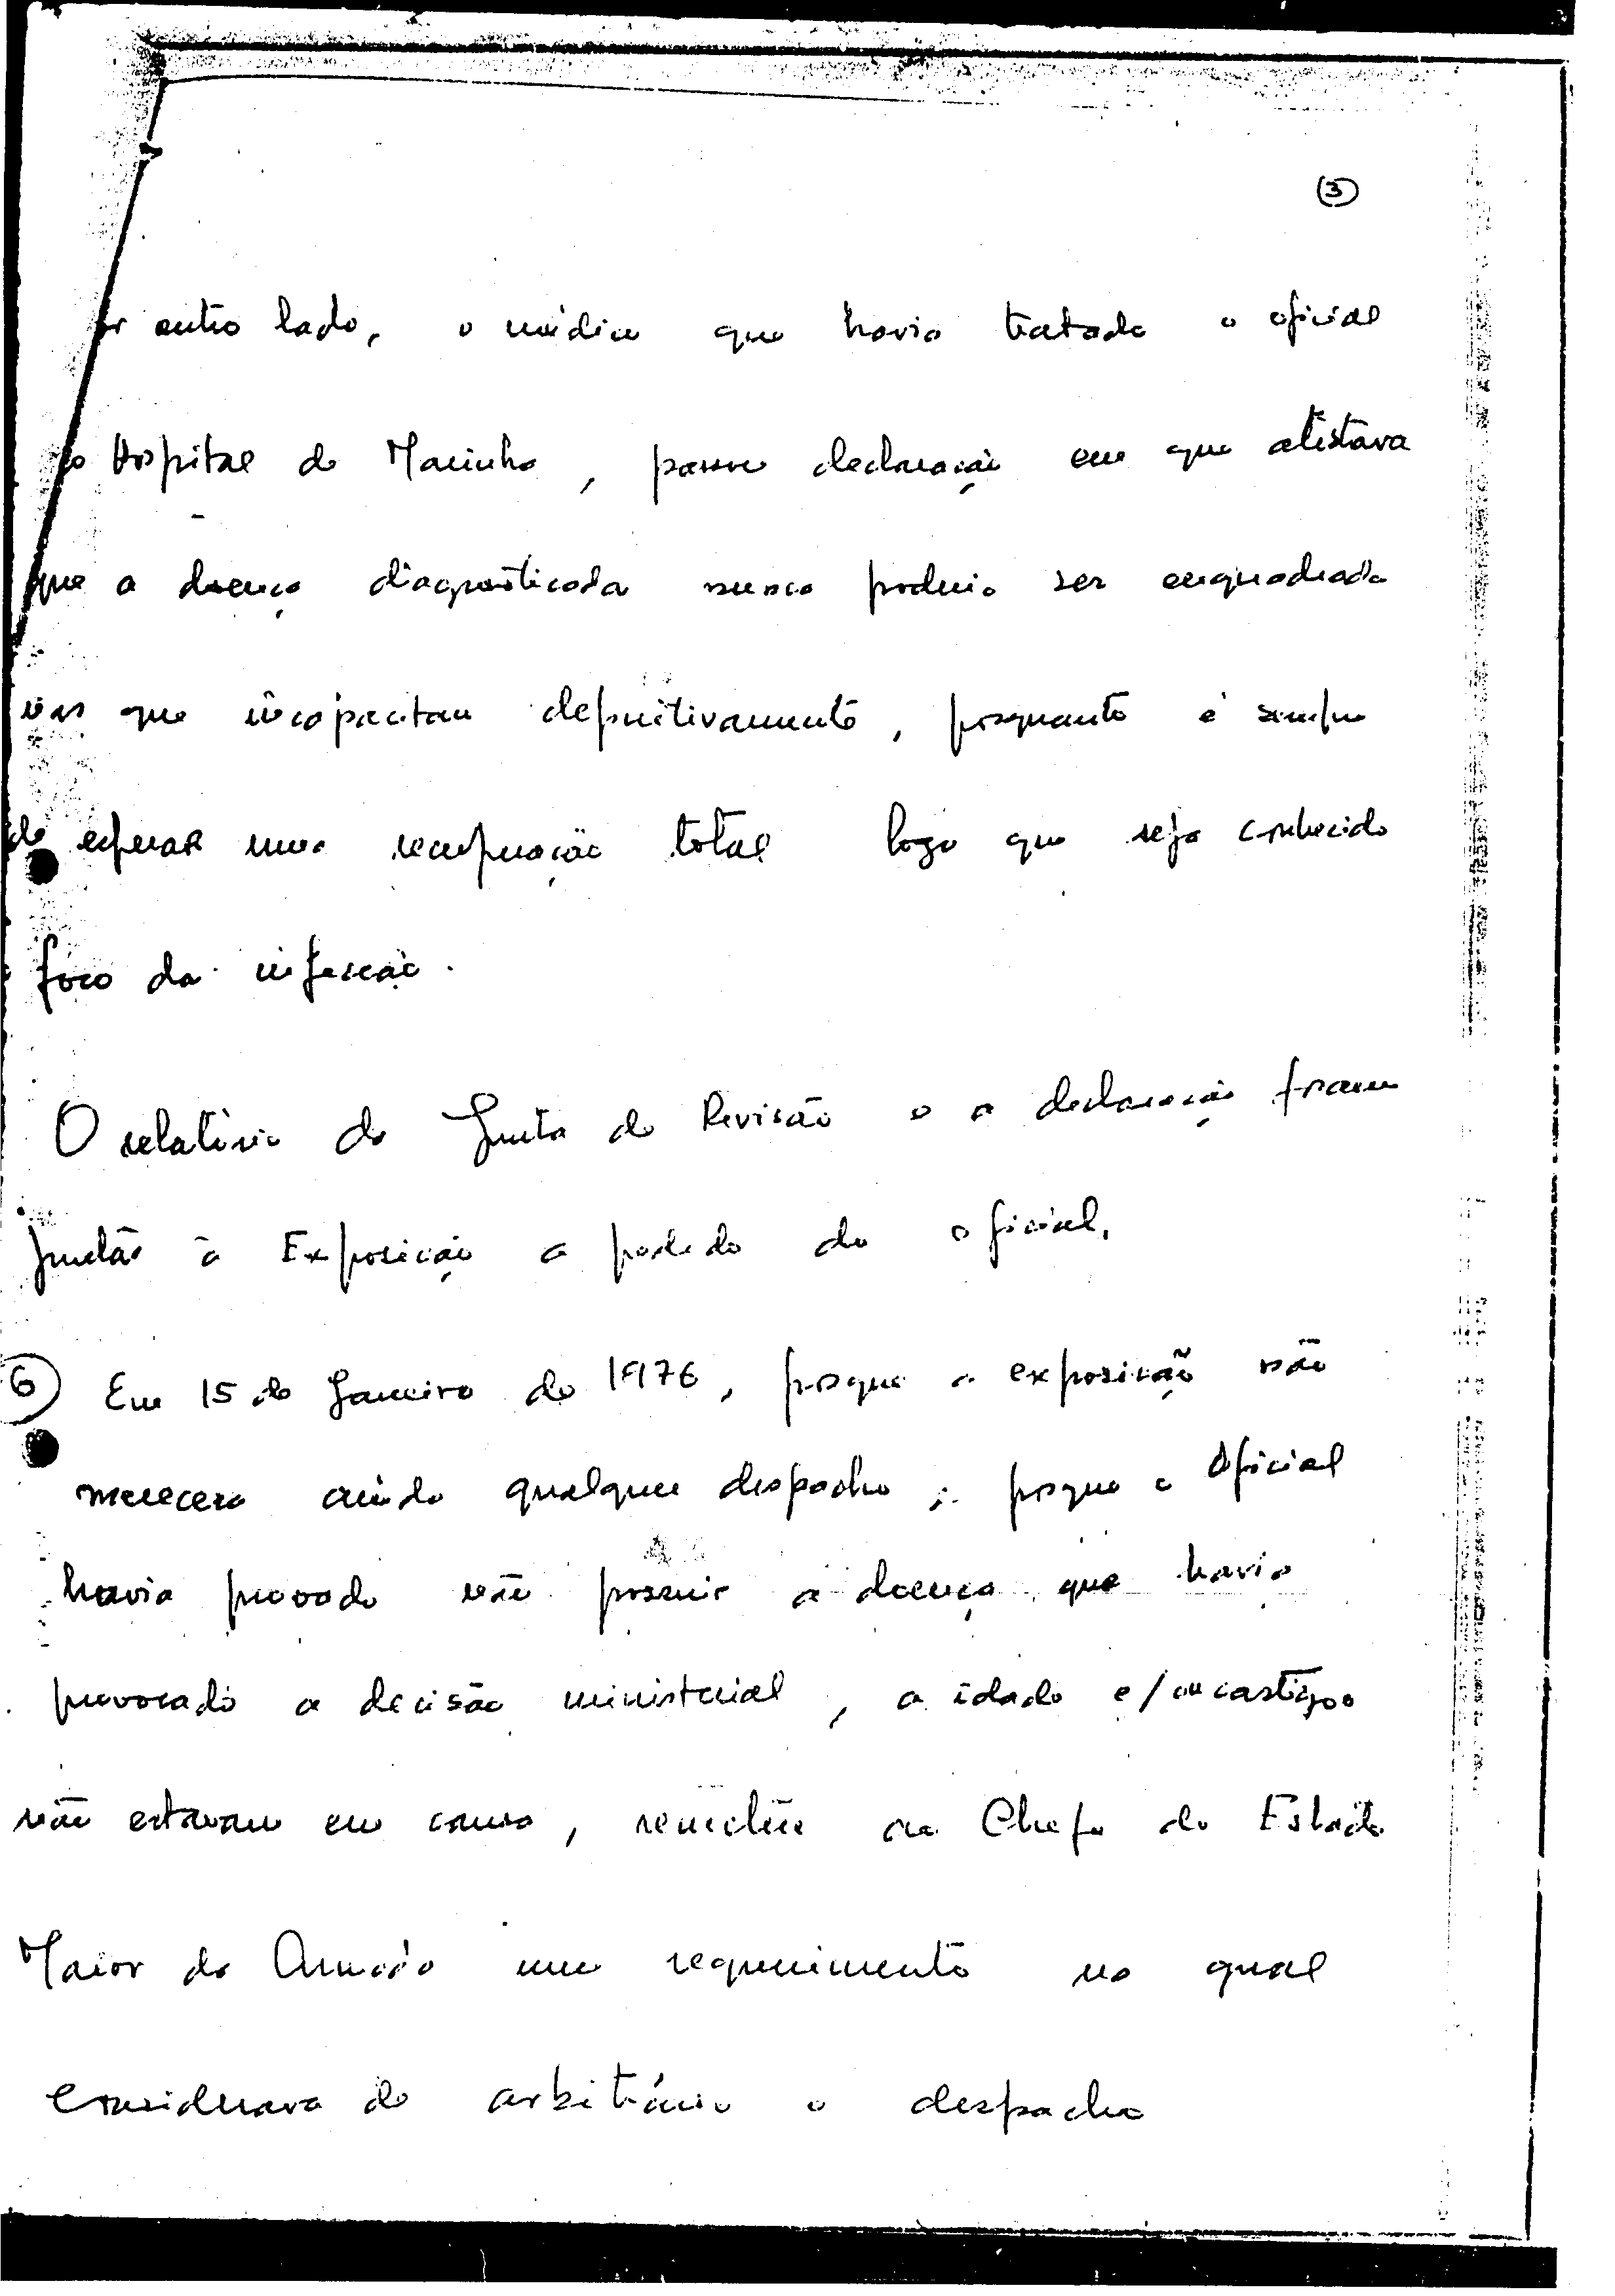 3
or outro lado, o médico que havia tratado o oficial
no Hospital da Marinha, passou declaração em que atestava
que a doença diagnosticada nunca poderia ser enquadrada
nas que incapacitam definitivamente, porquanto é sempre
de esperar uma recuperação total logo que seja conhecido
foco da infecção.
O relatório da Junta de Revisão e a declaração foram
juntas à Exposição a pedido do oficial.
6 Em 15 de Janeiro de 1976, porque a exposição não
merecera ainda qualquer despacho; porque o Oficial
havia provado não possuir a doença que havia
provocado a decisão ministerial, a idade e/ou castigos
não estavam em causa, remeteu ao Chefe do Estado
Maior da Armada um requerimento no qual
considerava de arbitrário o despacho